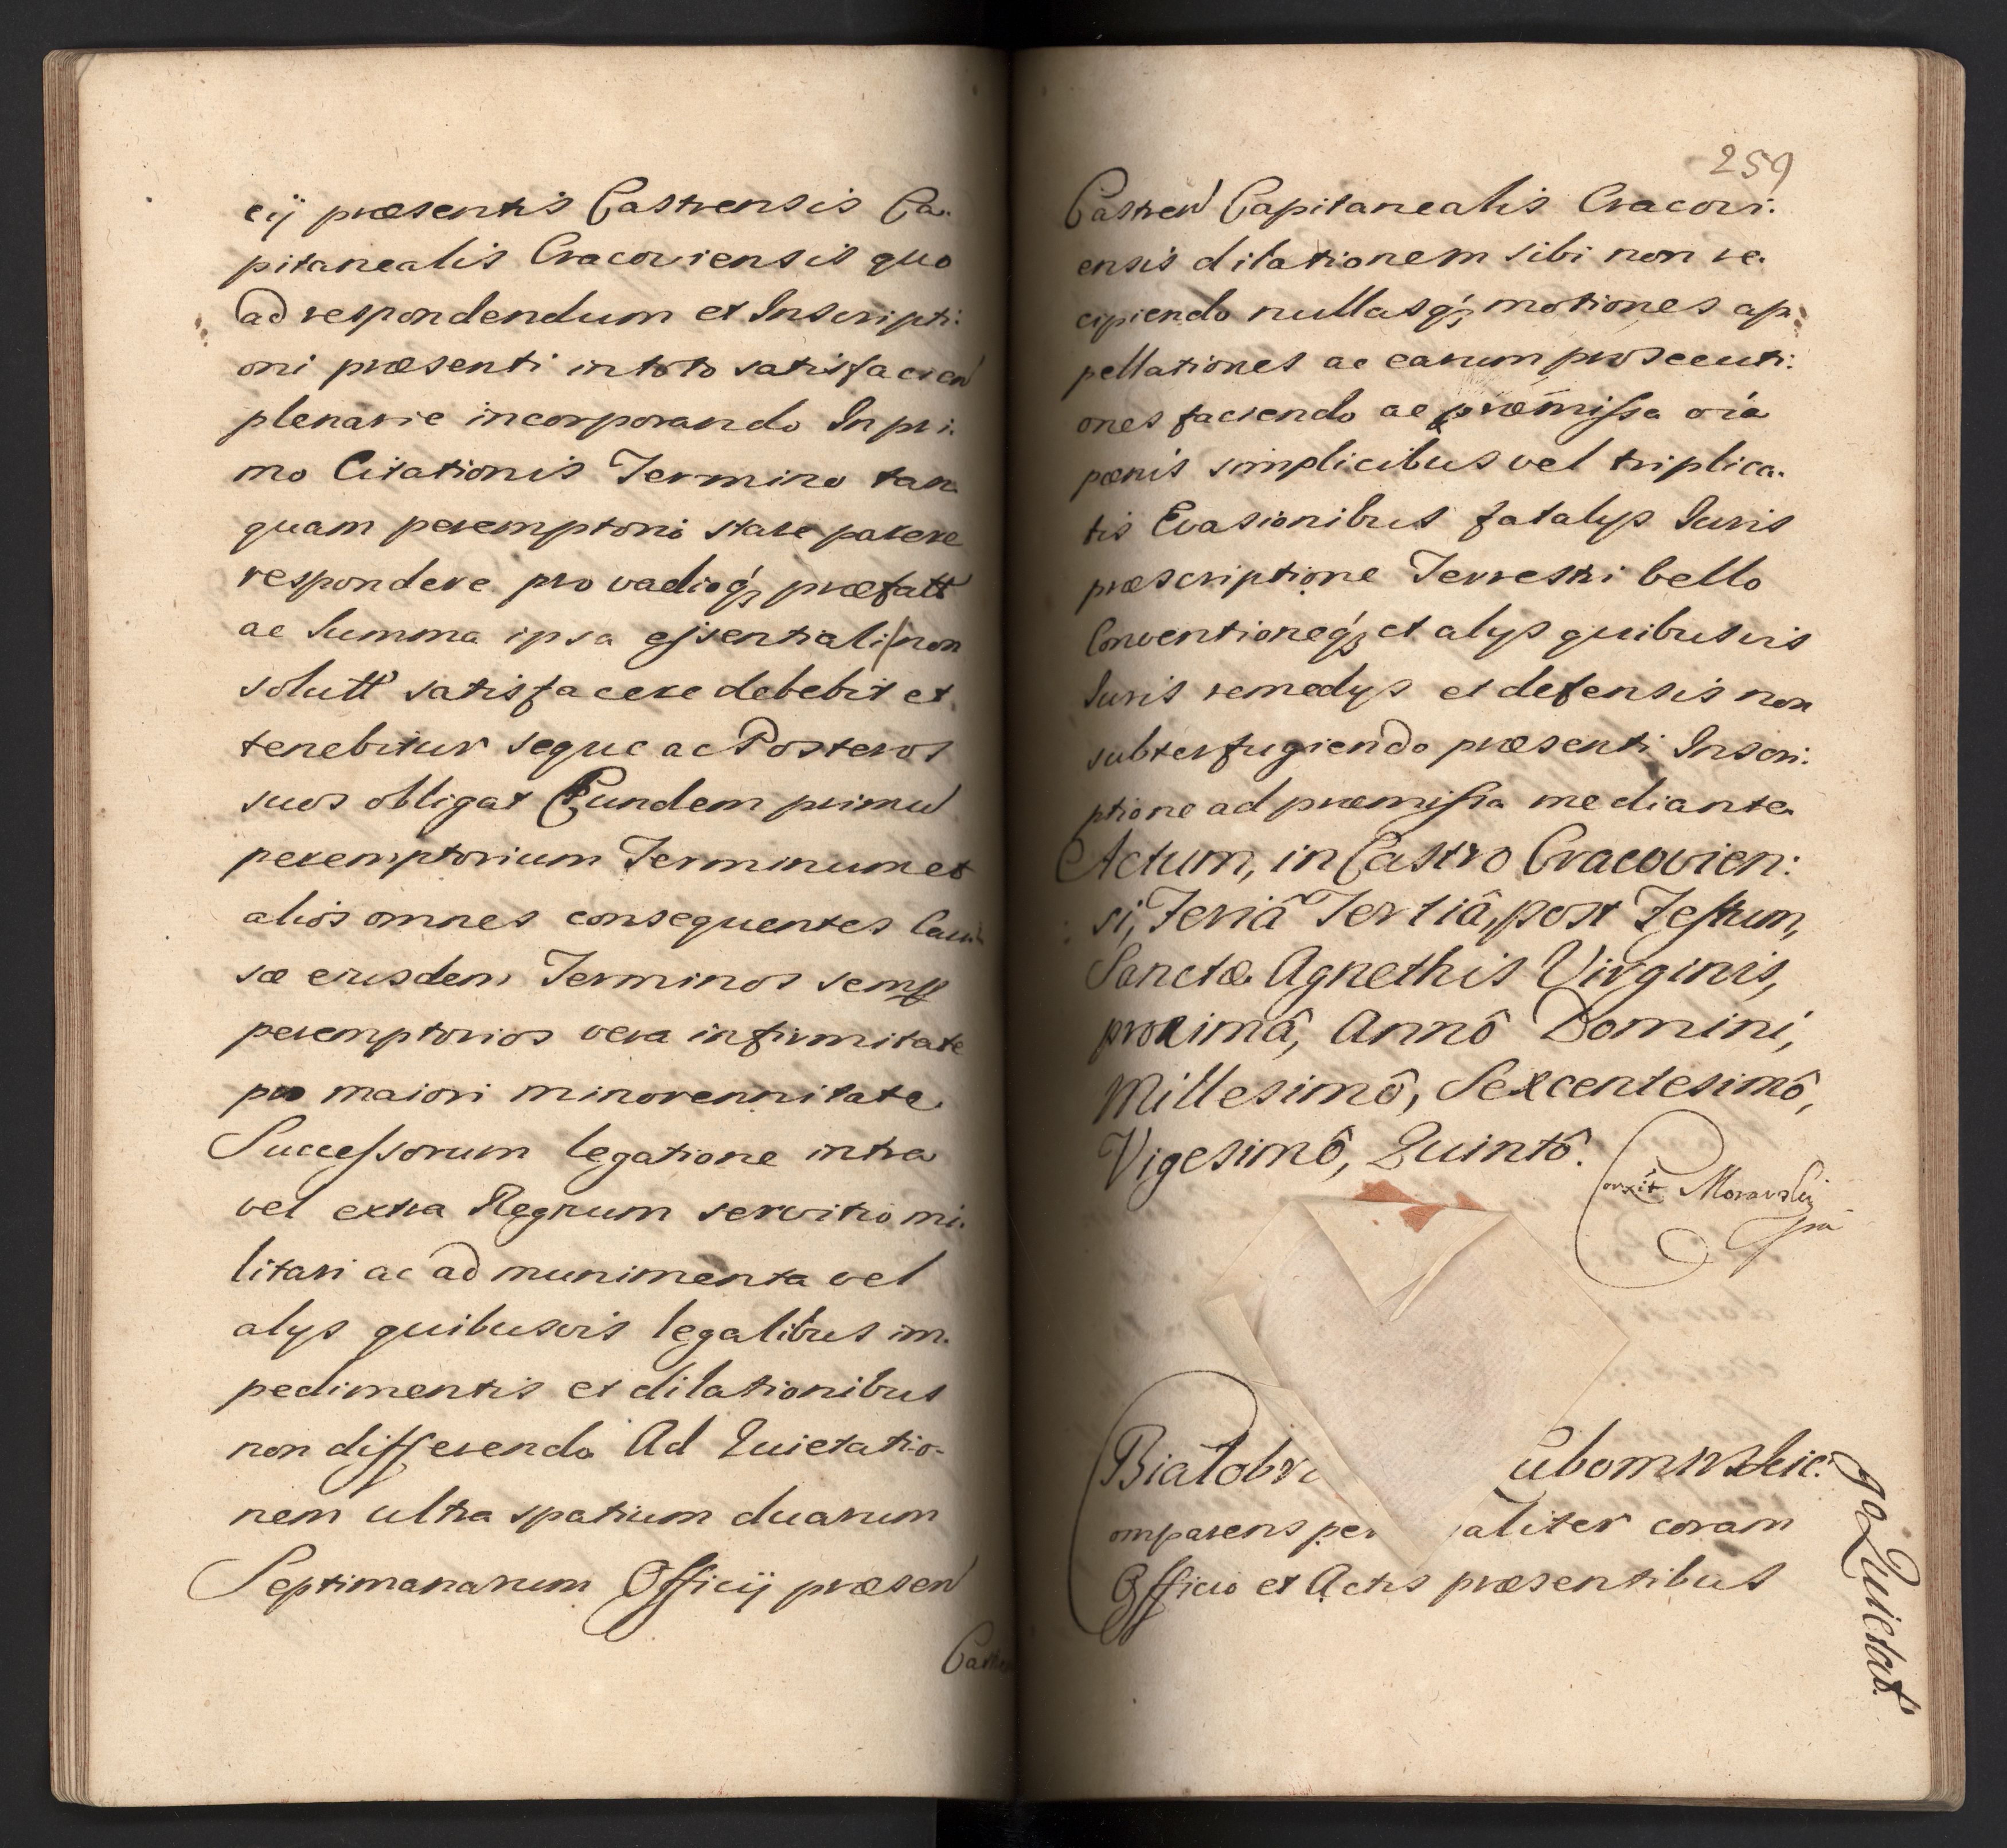 cij præsentis Castrensis Ca-
pitanealis Cracoviensis quo
ad respondendum et Inscripti:
oni præsenti in toto satisfacien
plenarie incorporando In pri:
mo Citationis Termino tan
quam peremptorio stare parere
respondere pro vadioq; præfatt
ac Summa ipsa essentiali non
solutt satisfacere debebit et
tenebitur seque ac Posteros
suos obligat Eundem primu
peremptorium Terminum et
alios omnes consequentes Cau
sæ eiusdem Terminos semp
peremptorios vera infirmitate
pro maiori minorennitate
Successorum legatione intra
vel extra Regnum servitio mi:
litari ac ad munimenta vel
alijs quibusvis legalibus im-
pedimentis et dilationibus
non differendo Ad Quietatio-
nem ultra spatium duarum
Septimanarum Officij præsen
Castren
259
Castren Capitanealis Cracovi:
ensis dilationem sibi non re-
cipiendo nullasq; motiones ap:
pellationes ac earum prosecuti:
ones faciendo ac præmissa oia
pœnis simplicibus vel triplica-
tis Evasionibus fatalijs Iuris
præscriptione Terrestri bello
Conventioneq; et alijs quibusvis
Iuris remedijs et defensis non
subterfugiendo præsenti Inscri:
ptione ad præmissa mediante
Actum, in Castro Cracovien:
si, Feriâ Tertiâ, post Festum,
Sanctæ Agnethis Virginis,
proximâ, Annô Domini,
Millesimô, Sexcentesimô,
Vigesimô, Quintô.
Białobr ubomirskie:
omparens per aliter coram
Officio et Actis præsentibus
Quietat.